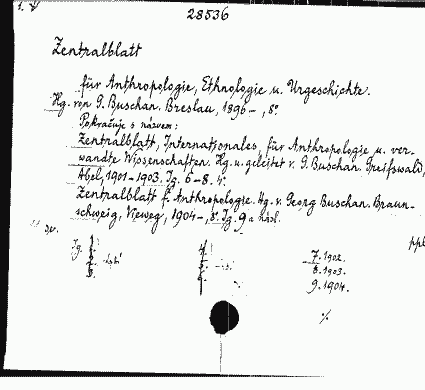 28536
Zentralblatt
für Anthropologie, Ethnologie u. Urgeschichte.
Hg. von G. Buschan. Breslau, 1896 - , 8°.
Pokračuje s názvem:
Zentralblatt, Internationales, für Anthropologie u. ver-
wandte Wissenschaften. Hg. u. geleitet v. G. Buschan. Greifswald,
Abel, 1901-1903. Jg. 6-8. 4°.
Zentralblatt f. Anthropologie. Hg. v. Georg Buschan. Braun-
schweig, Vieweg, 1904 - , 8°. Jg. 9 a násl.
Jg. 1.
7. 1902.
8. 1903.
9. 1904.